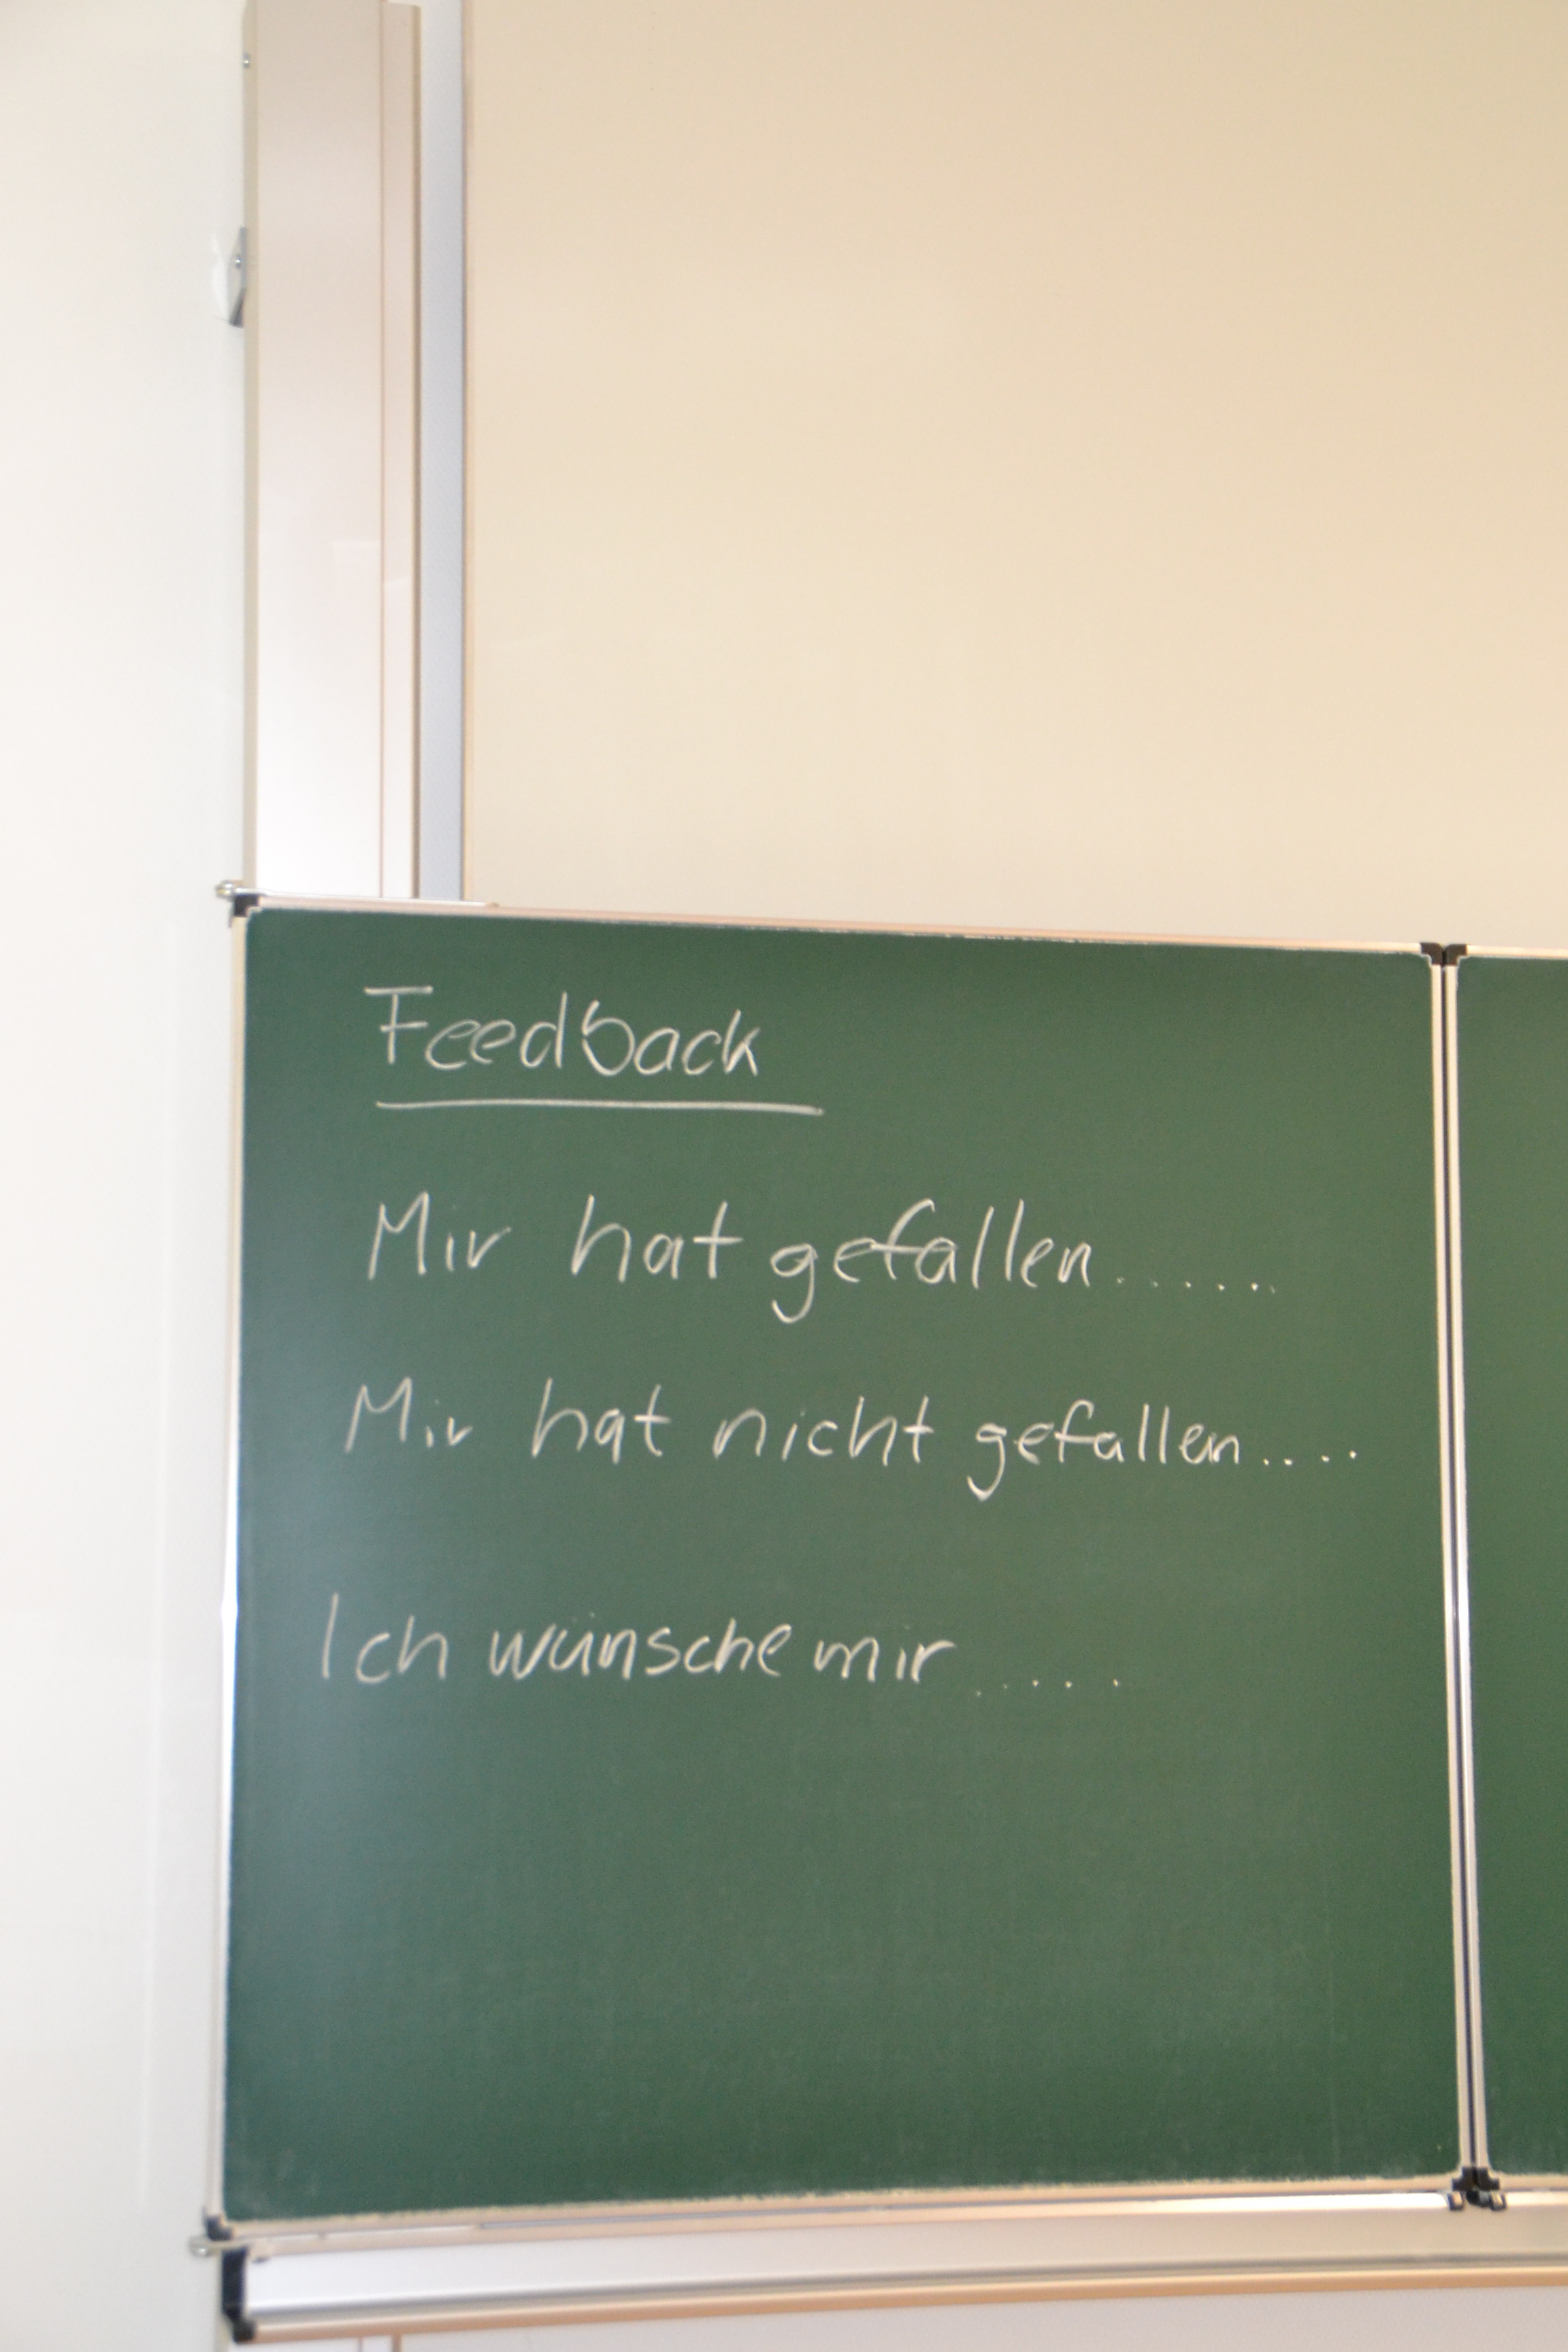 Feedback
Mir hat gefallen......
Mir hat nicht gefallen....
Ich wünsche mir.....